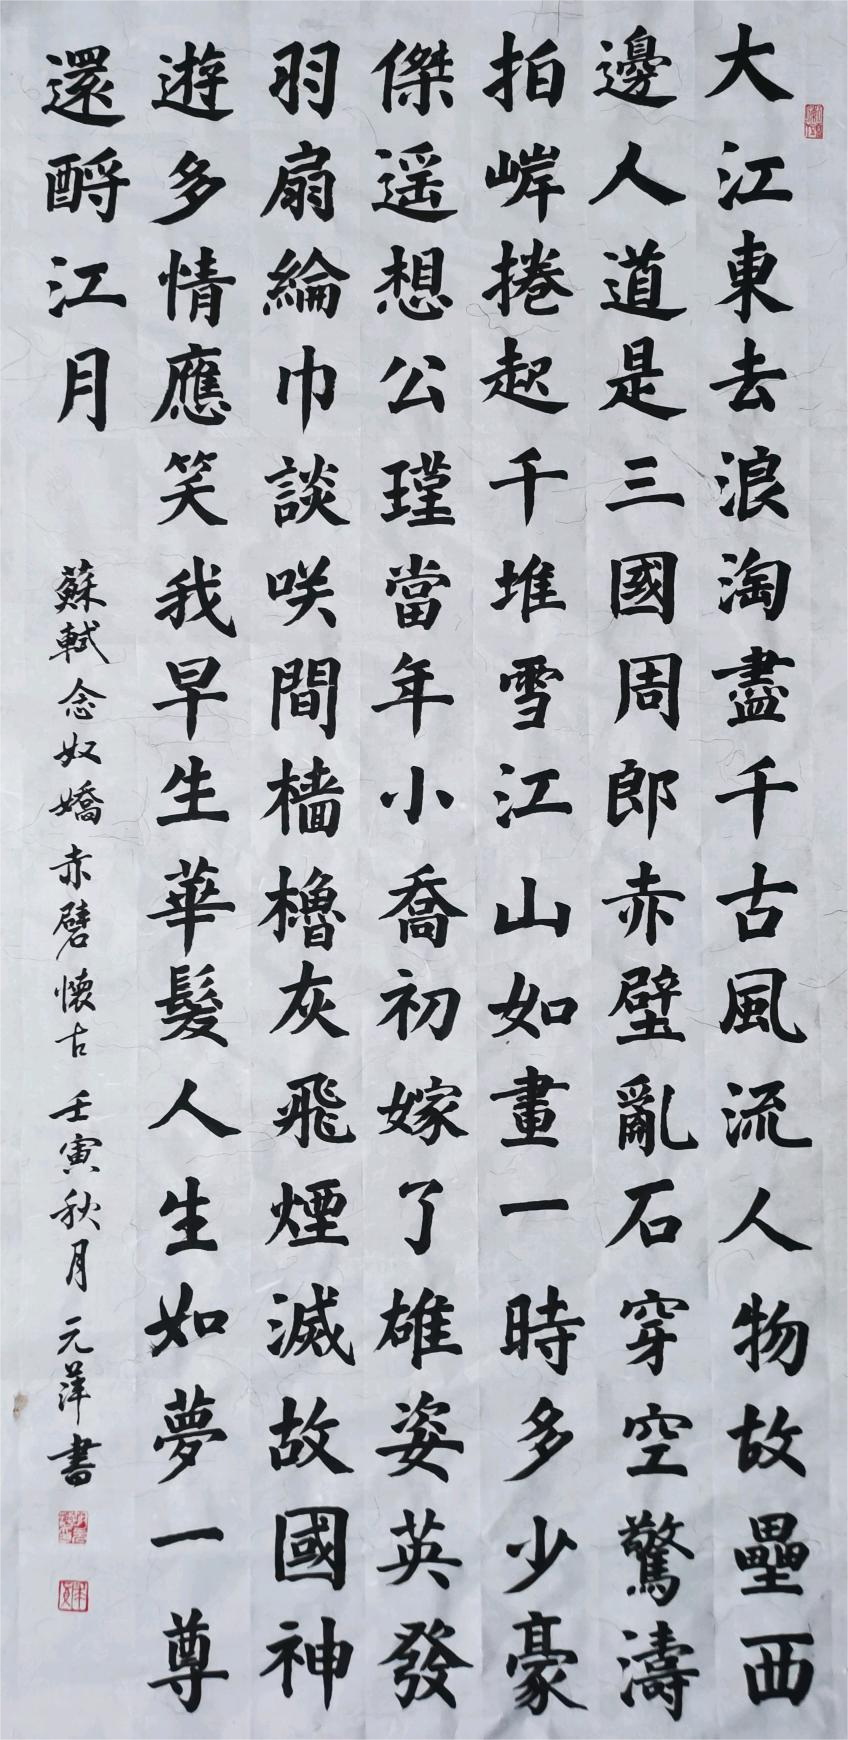 大江東去浪淘盡千古風流人物故壘西
邊人道是三國周郎赤壁亂石穿空驚濤
拍岸捲起千堆雪江山如畫一時多少豪
傑遥想公瑾當年小喬初嫁了雄姿英發
羽扇綸巾談咲間檣櫓灰飛煙滅故國神
遊多情應笑我早生華髮人生如夢一尊
還酹江月
蘇軾念奴嬌赤壁懷古壬寅秋月元萍書